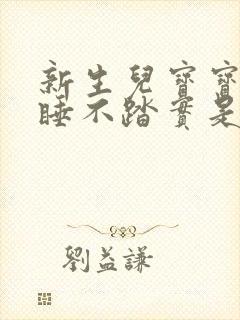 新生兒寶寶
睡不踏實是
劉益謙